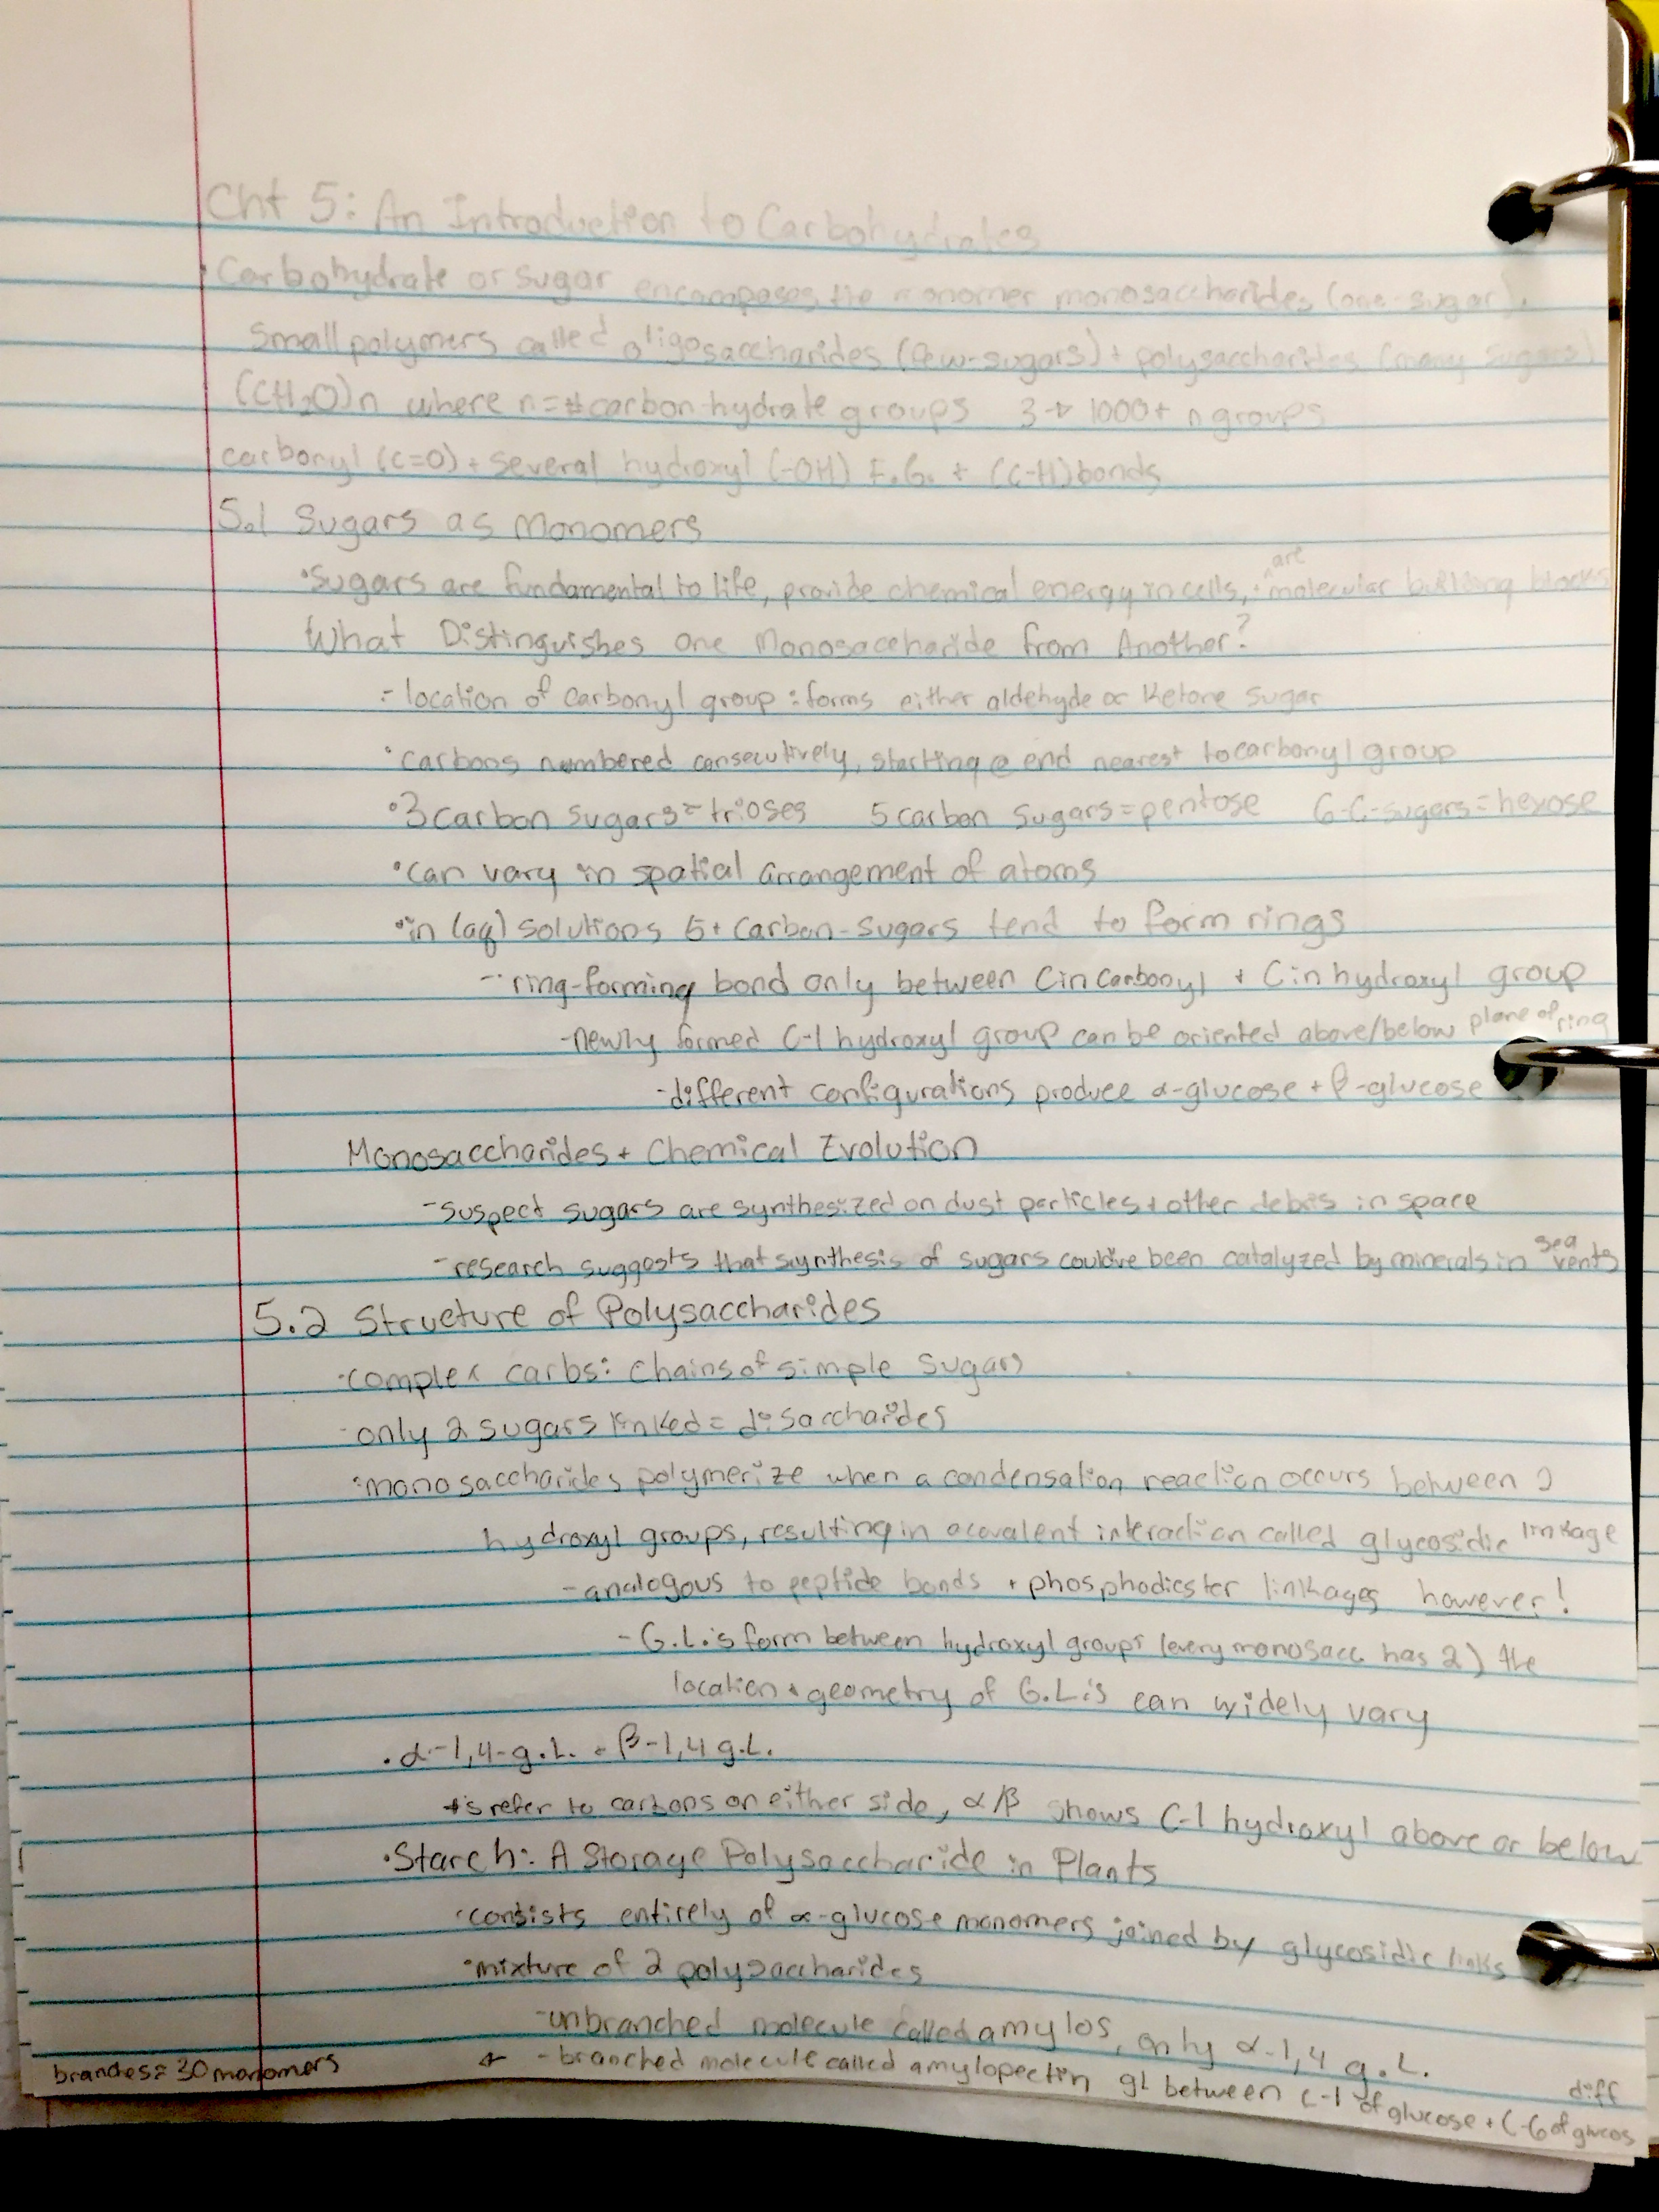 Cht 5: An Introduction to Carbohydrates
• Carbohydrate or sugar encompases the monomer monosaccharides (one-sugar).
Small polymers called oligosaccharides (few-sugars) + polysaccharides (many sugars)
(CH₂O)n where n=# carbon-hydrate groups 3 → 1000+ n groups
carbonyl (C=O) + several hydroxyl (-OH) F.G. + (C-H) bonds
5.1 Sugars as Monomers
• Sugars are fundamental to life, provide chemical energy in cells, + are molecular building blocks
What Distinguishes one Monosaccharide from Another?
- location of carbonyl group: forms either aldehyde or Ketone sugar
• carbons numbered consecutively, starting @ end nearest to carbonyl group
• 3 carbon sugars = trioses 5 carbon sugars = pentose 6-C-sugars = hexose
• can vary in spatial arrangement of atoms
• in (aq) solutions 5+ carbon-sugars tend to form rings
- ring-forming bond only between C in carbonyl + C in hydroxyl group
- newly formed C-1 hydroxyl group can be oriented above/below plane of ring
- different configurations produce α-glucose + β-glucose
Monosaccharides + Chemical Evolution
- suspect sugars are synthesized on dust particles + other debris in space
- research suggests that synthesis of sugars could've been catalyzed by minerals in sea vents
5.2 Structure of Polysaccharides
• complex carbs: chains of simple sugars
- only 2 sugars linked = disaccharides
• monosaccharides polymerize when a condensation reaction occurs between 2
hydroxyl groups, resulting in a covalent interaction called glycosidic linkage
- analogous to peptide bonds + phosphodiester linkages however!
- G.L.'s form between hydroxyl groups (every monosacc has 2) the
location + geometry of G.L.'s can widely vary
• α-1,4-g.L. + β-1,4 g.L.
#'s refer to carbons on either side, α/β shows C-1 hydroxyl above or below
• Starch: A Storage Polysaccharide in Plants
• consists entirely of α-glucose monomers joined by glycosidic links
• mixture of 2 polysaccharides
- unbranched molecule called amylos, only α-1,4 g.L.
- branched molecule called amylopectin gL between C-1 of glucose + C-6 of diff glucos
branches = 30 monomers